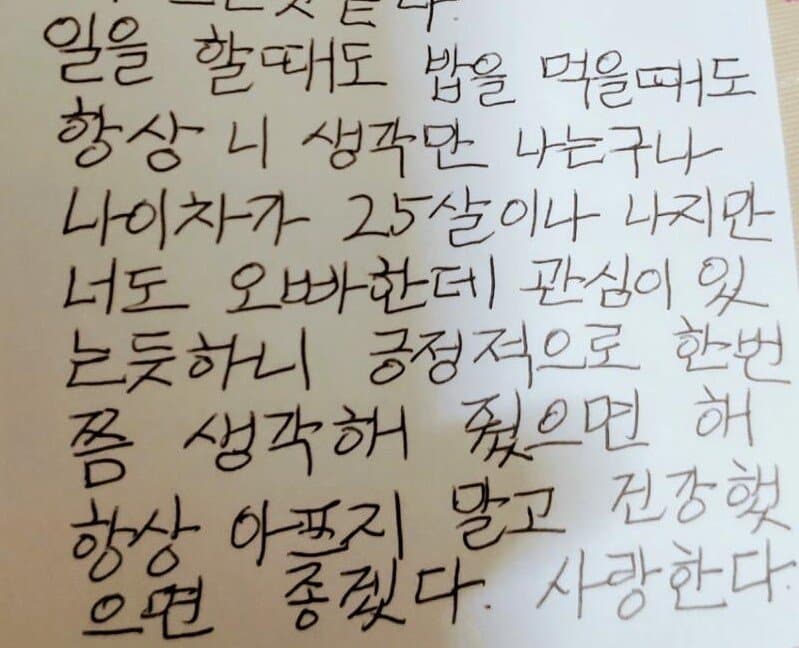 일을 할때도 밥을 먹을때도
항상 니 생각만 나는구나
나이차가 25살이나 나지만
너도 오빠한데 관심이 있
는듯하니 긍정적으로 한번
쯤 생각해 줬으면 해
항상 아프지 말고 건강했
으면 좋겠다. 사랑한다.